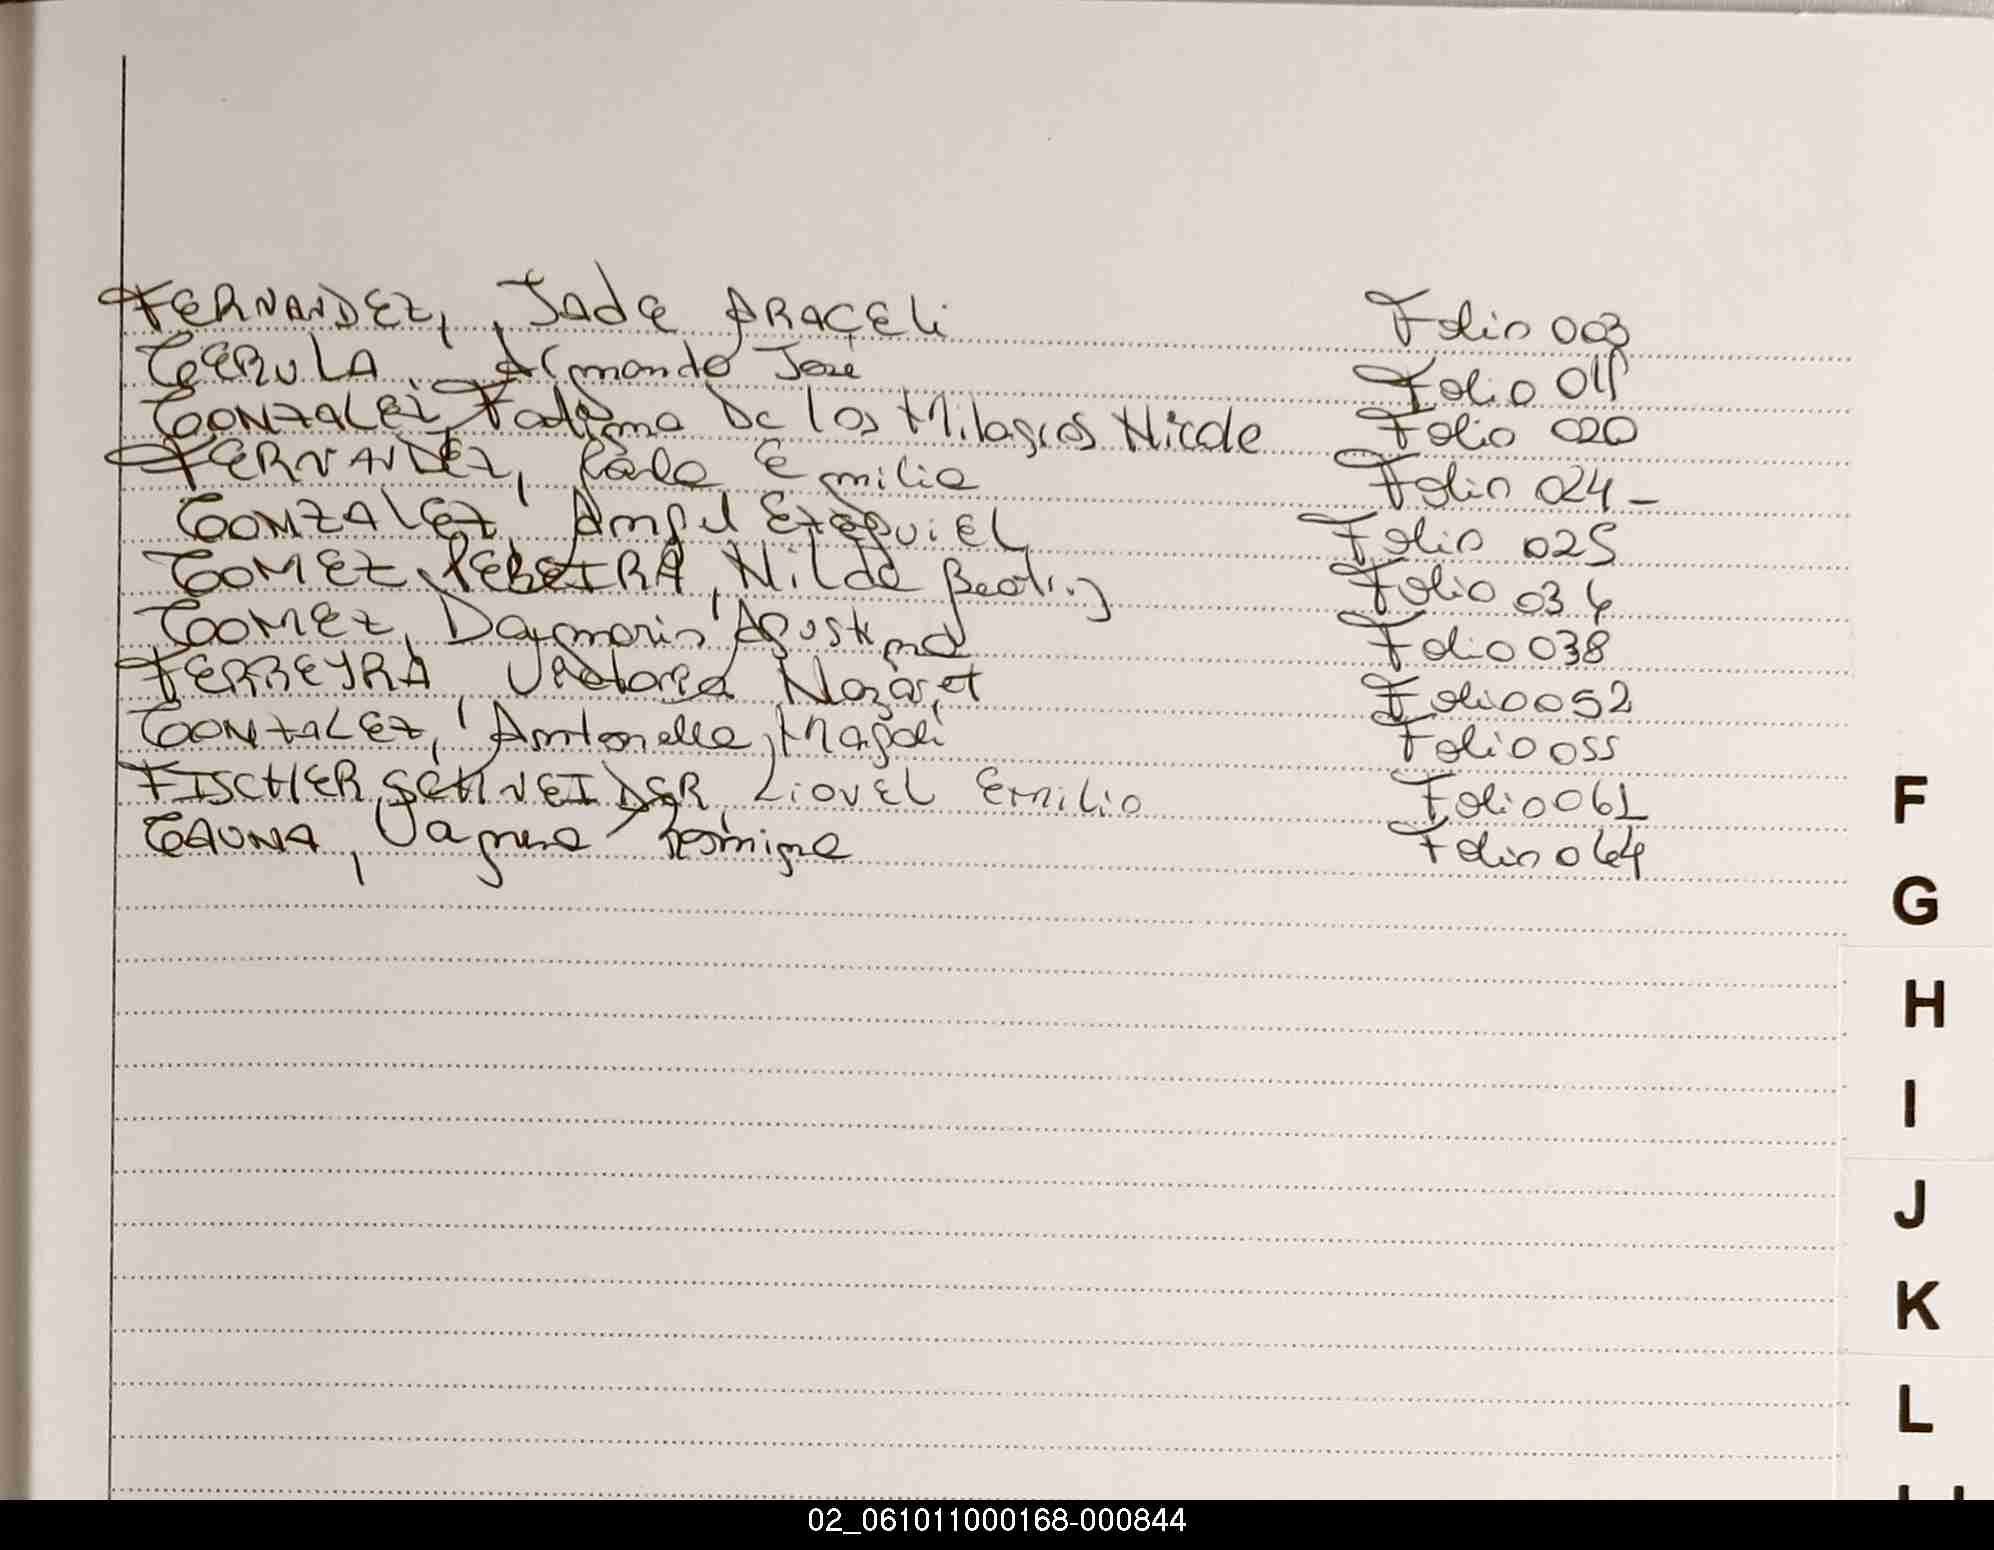 FERNANDEZ, Jade ARACELi Folio 003
GERULA, Armando José Folio 011
GONZALEZ Fatima De los Milagros Nicole Folio 020
FERNANDEZ, Carla Emilia Folio 024-
GONZALEZ, Angel EzequiEL Folio 025
GOMEZ PEREIRA, Nilda Beatriz Folio 034
GOMEZ, Daymaris Agustina Folio 038
FERREYRA, Victoria Nazaret Folio 052
GONZALEZ, Antonella Magali Folio 055
FISCHER SCHNEIDER, LioNEL Emilio Folio 061
F
GAUNA, Folio 064
G
H
I
J
K
L
02_061011000168-000844